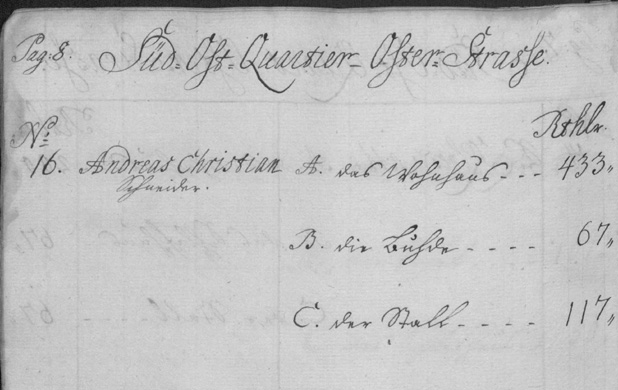 Pag: 8. Süd-Ost-Quartier-Oster-Strasse.
No: Rthlr.
16. Andreas Christian A. das Wohnhaus - - - 433,,
Schneider.
B. die Buhde - - - - 67,,
C. der Stall - - - - 117,,